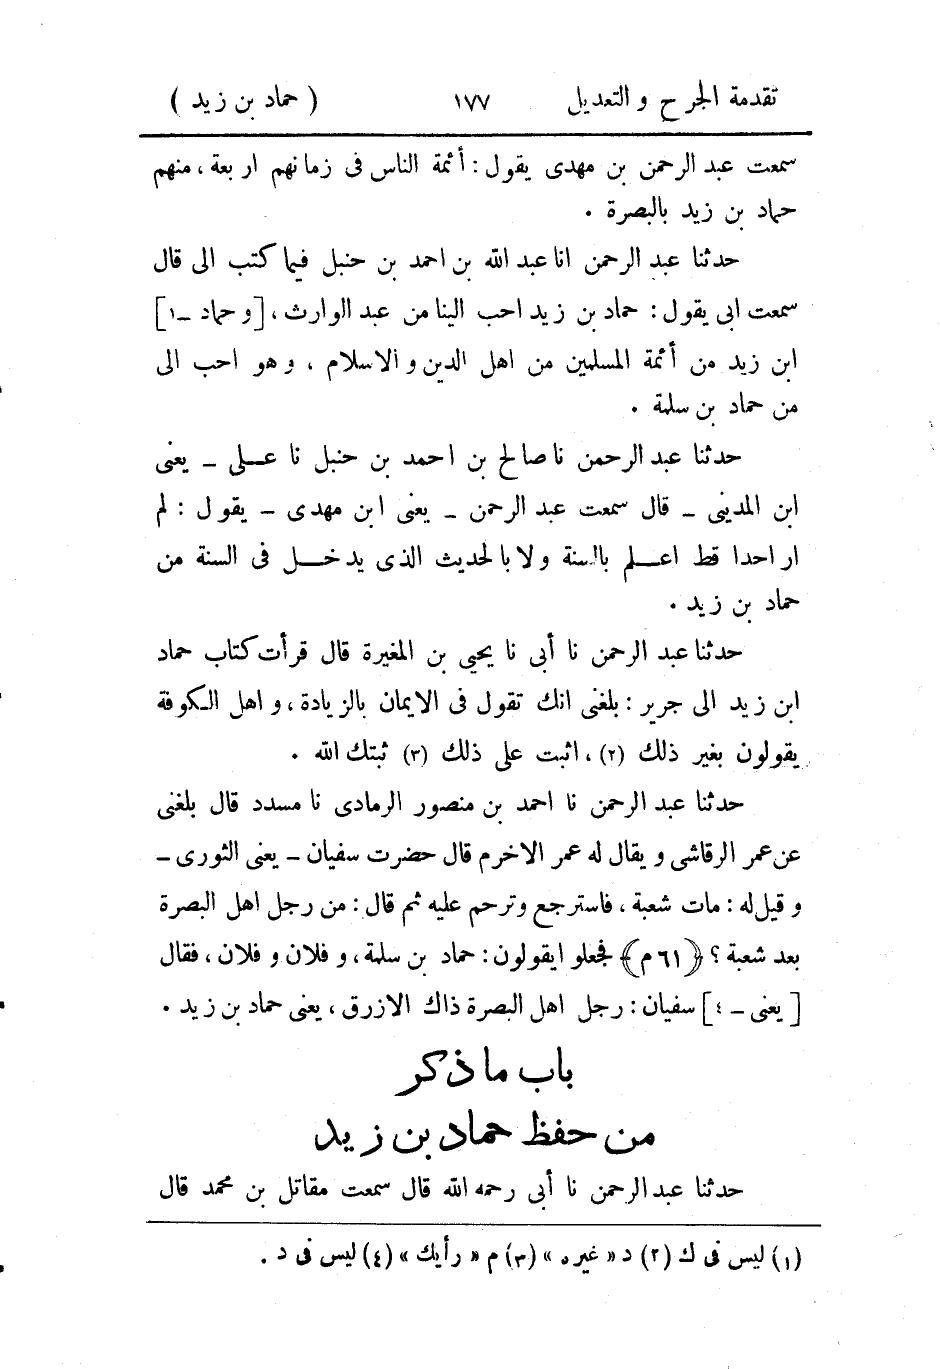 تقدمة الجرح والتعديل ١٧٧ ( حماد بن زيد )
سمعت عبد الرحمن بن مهدى يقول : أئمة الناس فى زمانهم اربعة ، منهم
حماد بن زيد بالبصرة .
حدثنا عبد الرحمن انا عبد الله بن احمد بن حنبل فيما كتب الى قال
سمعت ابى يقول : حماد بن زيد احب الينا من عبد الوارث ، [ و حماد - ١ ]
ابن زيد من أئمة المسلمين من اهل الدين والاسلام ، وهو احب الى
من حماد بن سلمة .
حدثنا عبد الرحمن نا صالح بن احمد بن حنبل نا عـلى - يعنى
ابن المدينى - قال سمعت عبد الرحمن - يعنى ابن مهدى - يقول : لم
ار احدا قط اعـلم بالسنة ولا بالحديث الذى يدخـل فى السنة من
حماد بن زيد .
حدثنا عبد الرحمن نا أبى نا يحيى بن المغيرة قال قرأت كتاب حماد
ابن زيد الى جرير : بلغنى انك تقول فى الايمان بالزيادة ، و اهل الكوفة
يقولون بغير ذلك (٢) ، اثبت على ذلك (٣) ثبتك الله .
حدثنا عبد الرحمن نا احمد بن منصور الرمادى نا مسدد قال بلغنى
عن عمر الرقاشى و يقال له عمر الاخرم قال حضرت سفيان - يعنى الثورى -
و قيل له : مات شعبة ، فاسترجع وترحم عليه ثم قال : من رجل اهل البصرة
بعد شعبة ؟ ﴿ ٦١ م ﴾ فجعلو ايقولون : حماد بن سلمة ، و فلان و فلان ، فقال
[ يعنى - ٤ ] سفيان : رجل اهل البصرة ذاك الازرق ، يعنى حماد بن زيد .
باب ما ذكر
من حفظ حماد بن زيد
حدثنا عبد الرحمن نا أبى رحمه الله قال سمعت مقاتل بن محمد قال
(١) ليس فى ك (٢) د « غيره » (٣) م « رأيك » (٤) ليس فى د .